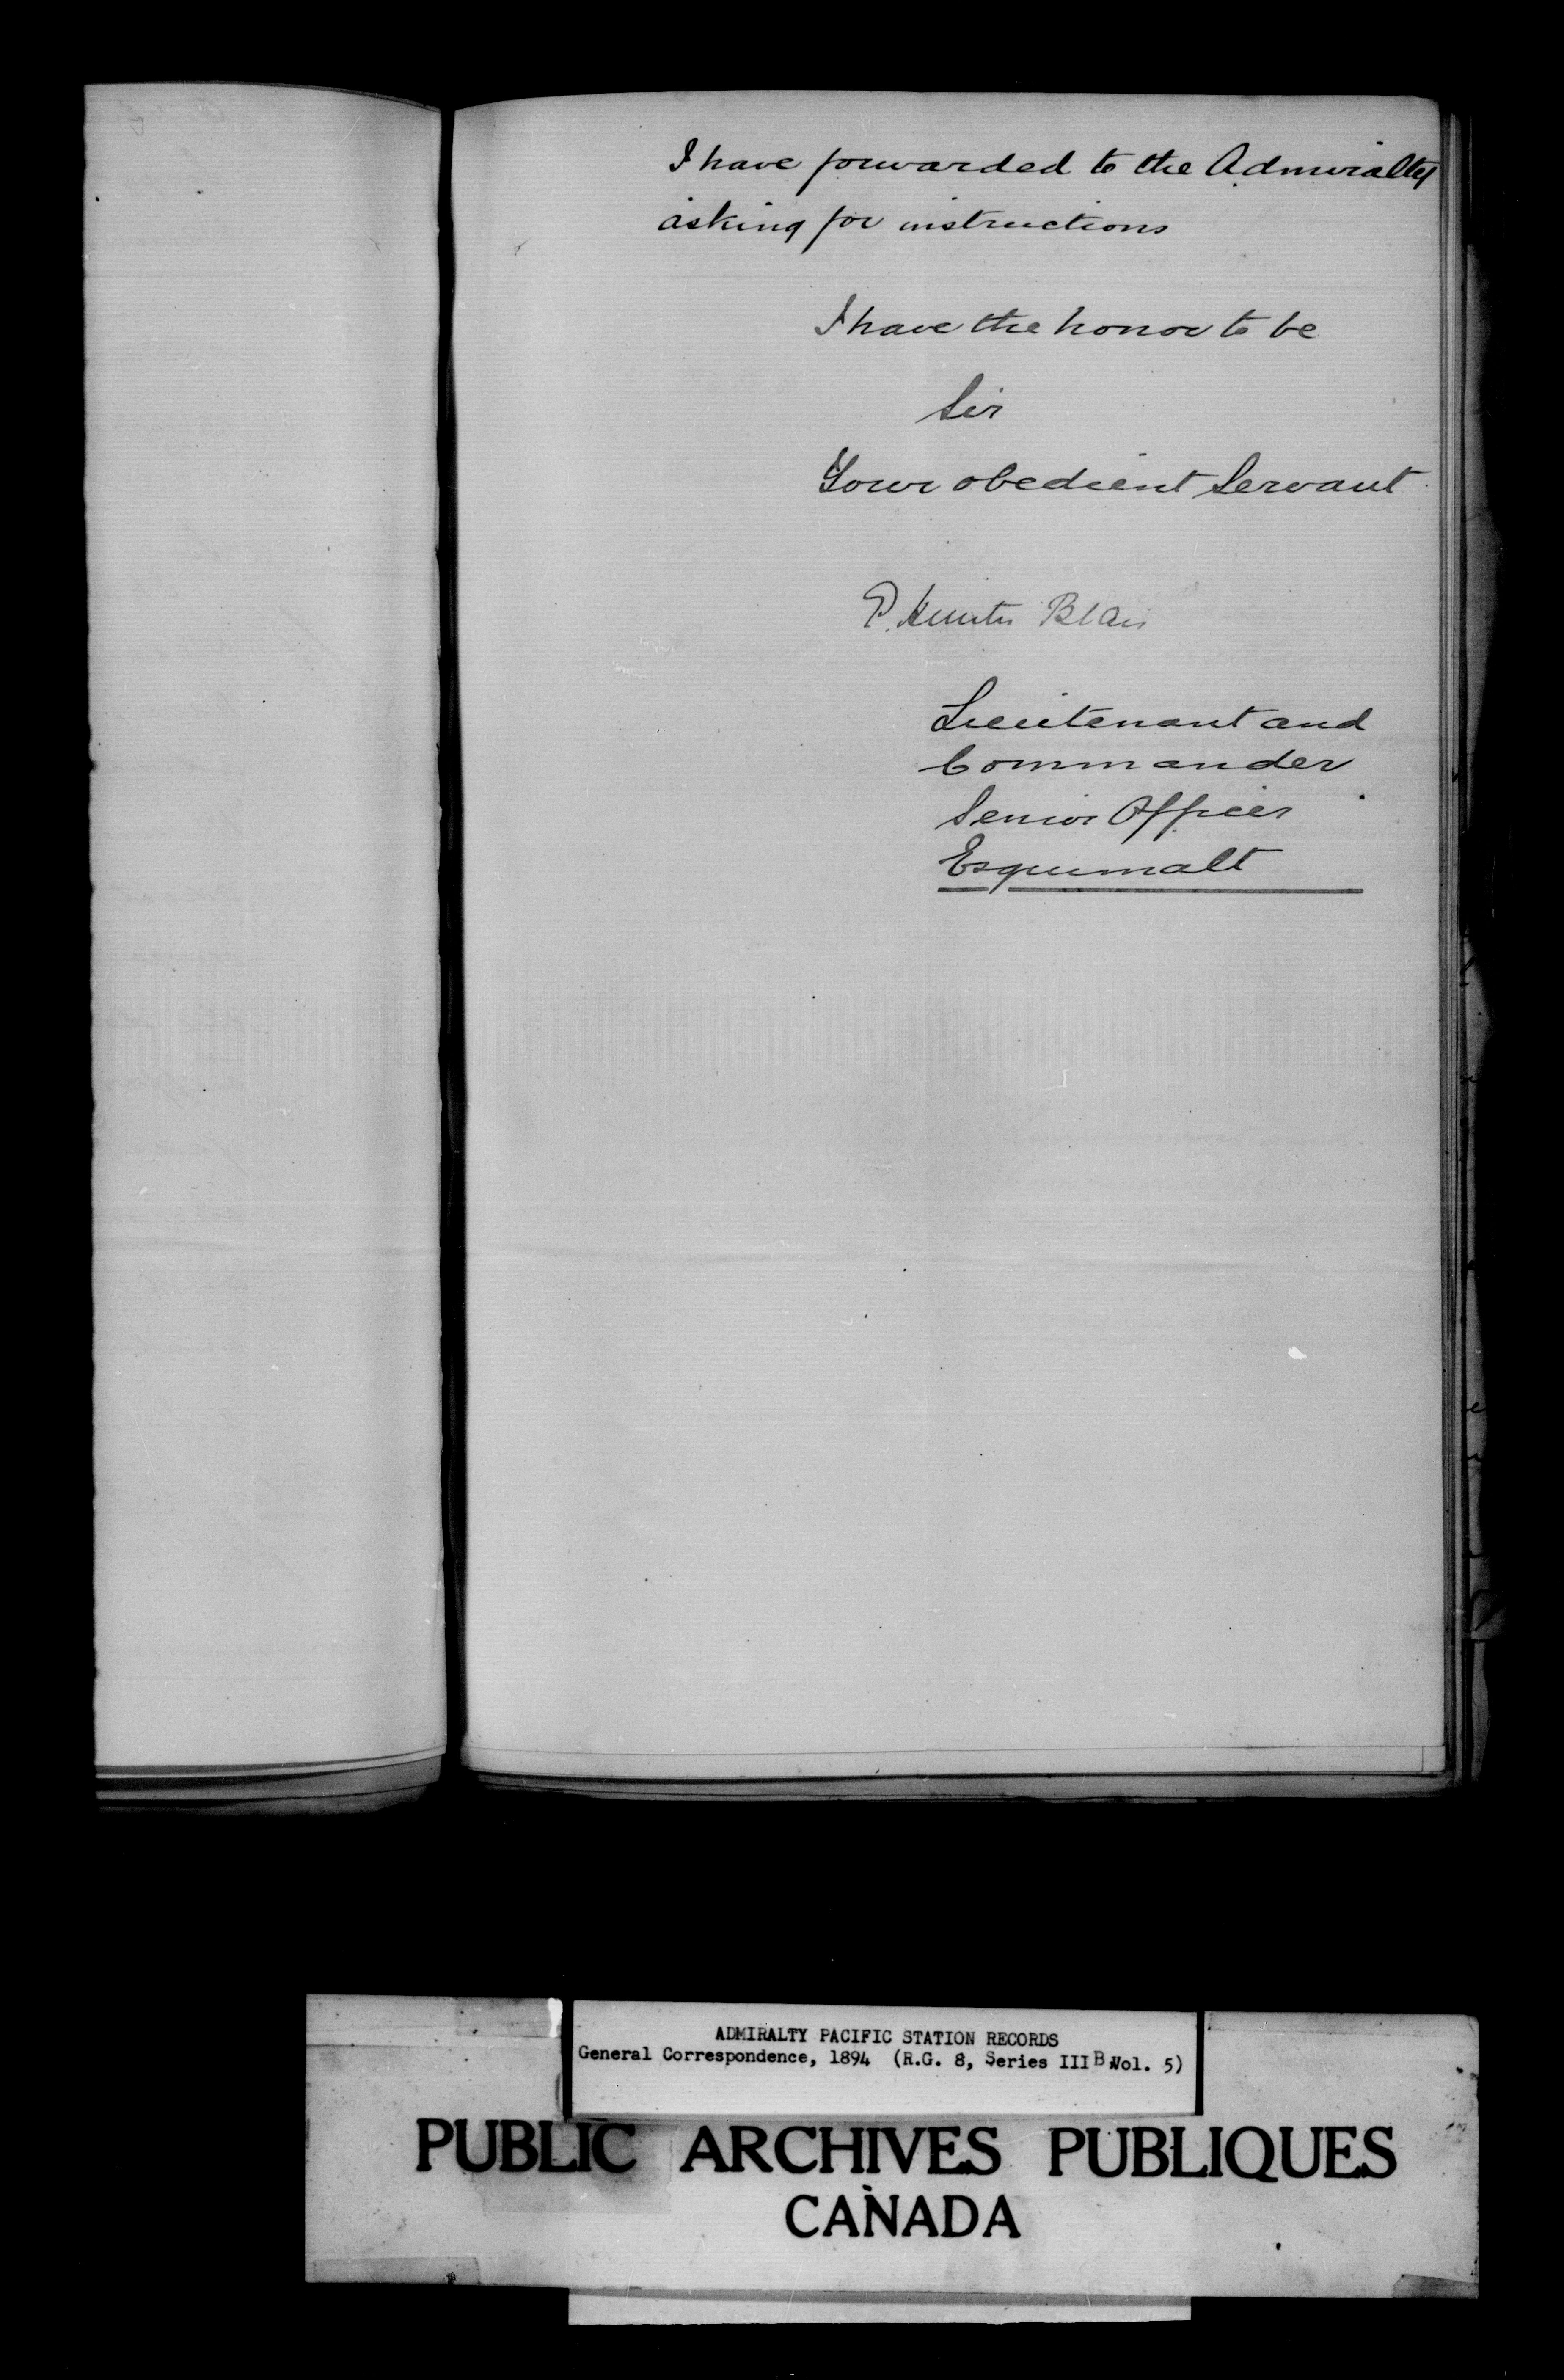 I have forwarded to the Admiralty
asking for instructions
I have the honor to be
Sir
Your obedient Servant
P. Hunter Blair
Lieutenant and
Commander
Senior Officer
Esquimalt
ADMIRALTY PACIFIC STATION RECORDS
General Correspondence, 1894 (R.G. 8, Series III B Vol. 5)
PUBLIC ARCHIVES PUBLIQUES
CANADA